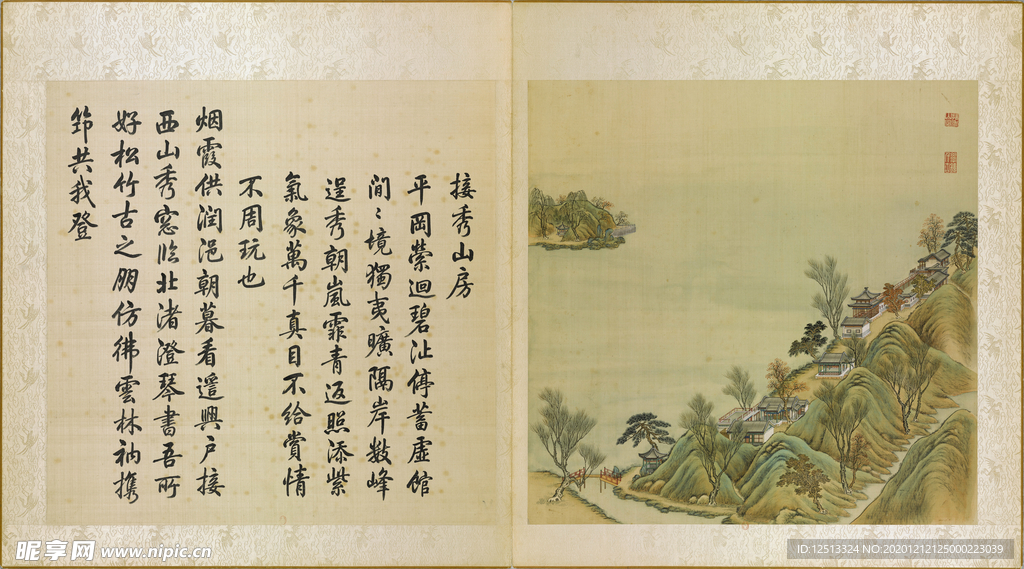 接秀山房
平岡縈迴碧沚停蓄虛館
間〻境獨夷曠隔岸數峰
逞秀朝嵐霏青返照添紫
氣象萬千真目不給賞情
不周玩也
烟霞供潤浥朝暮看遥興戶接
西山秀窓臨北渚澄琴書吾所
好松竹古之朋仿彿雲林衲攜
筇共我登
昵享网 www.nipic.cn
ID:12513324 NO:20201212125000223039